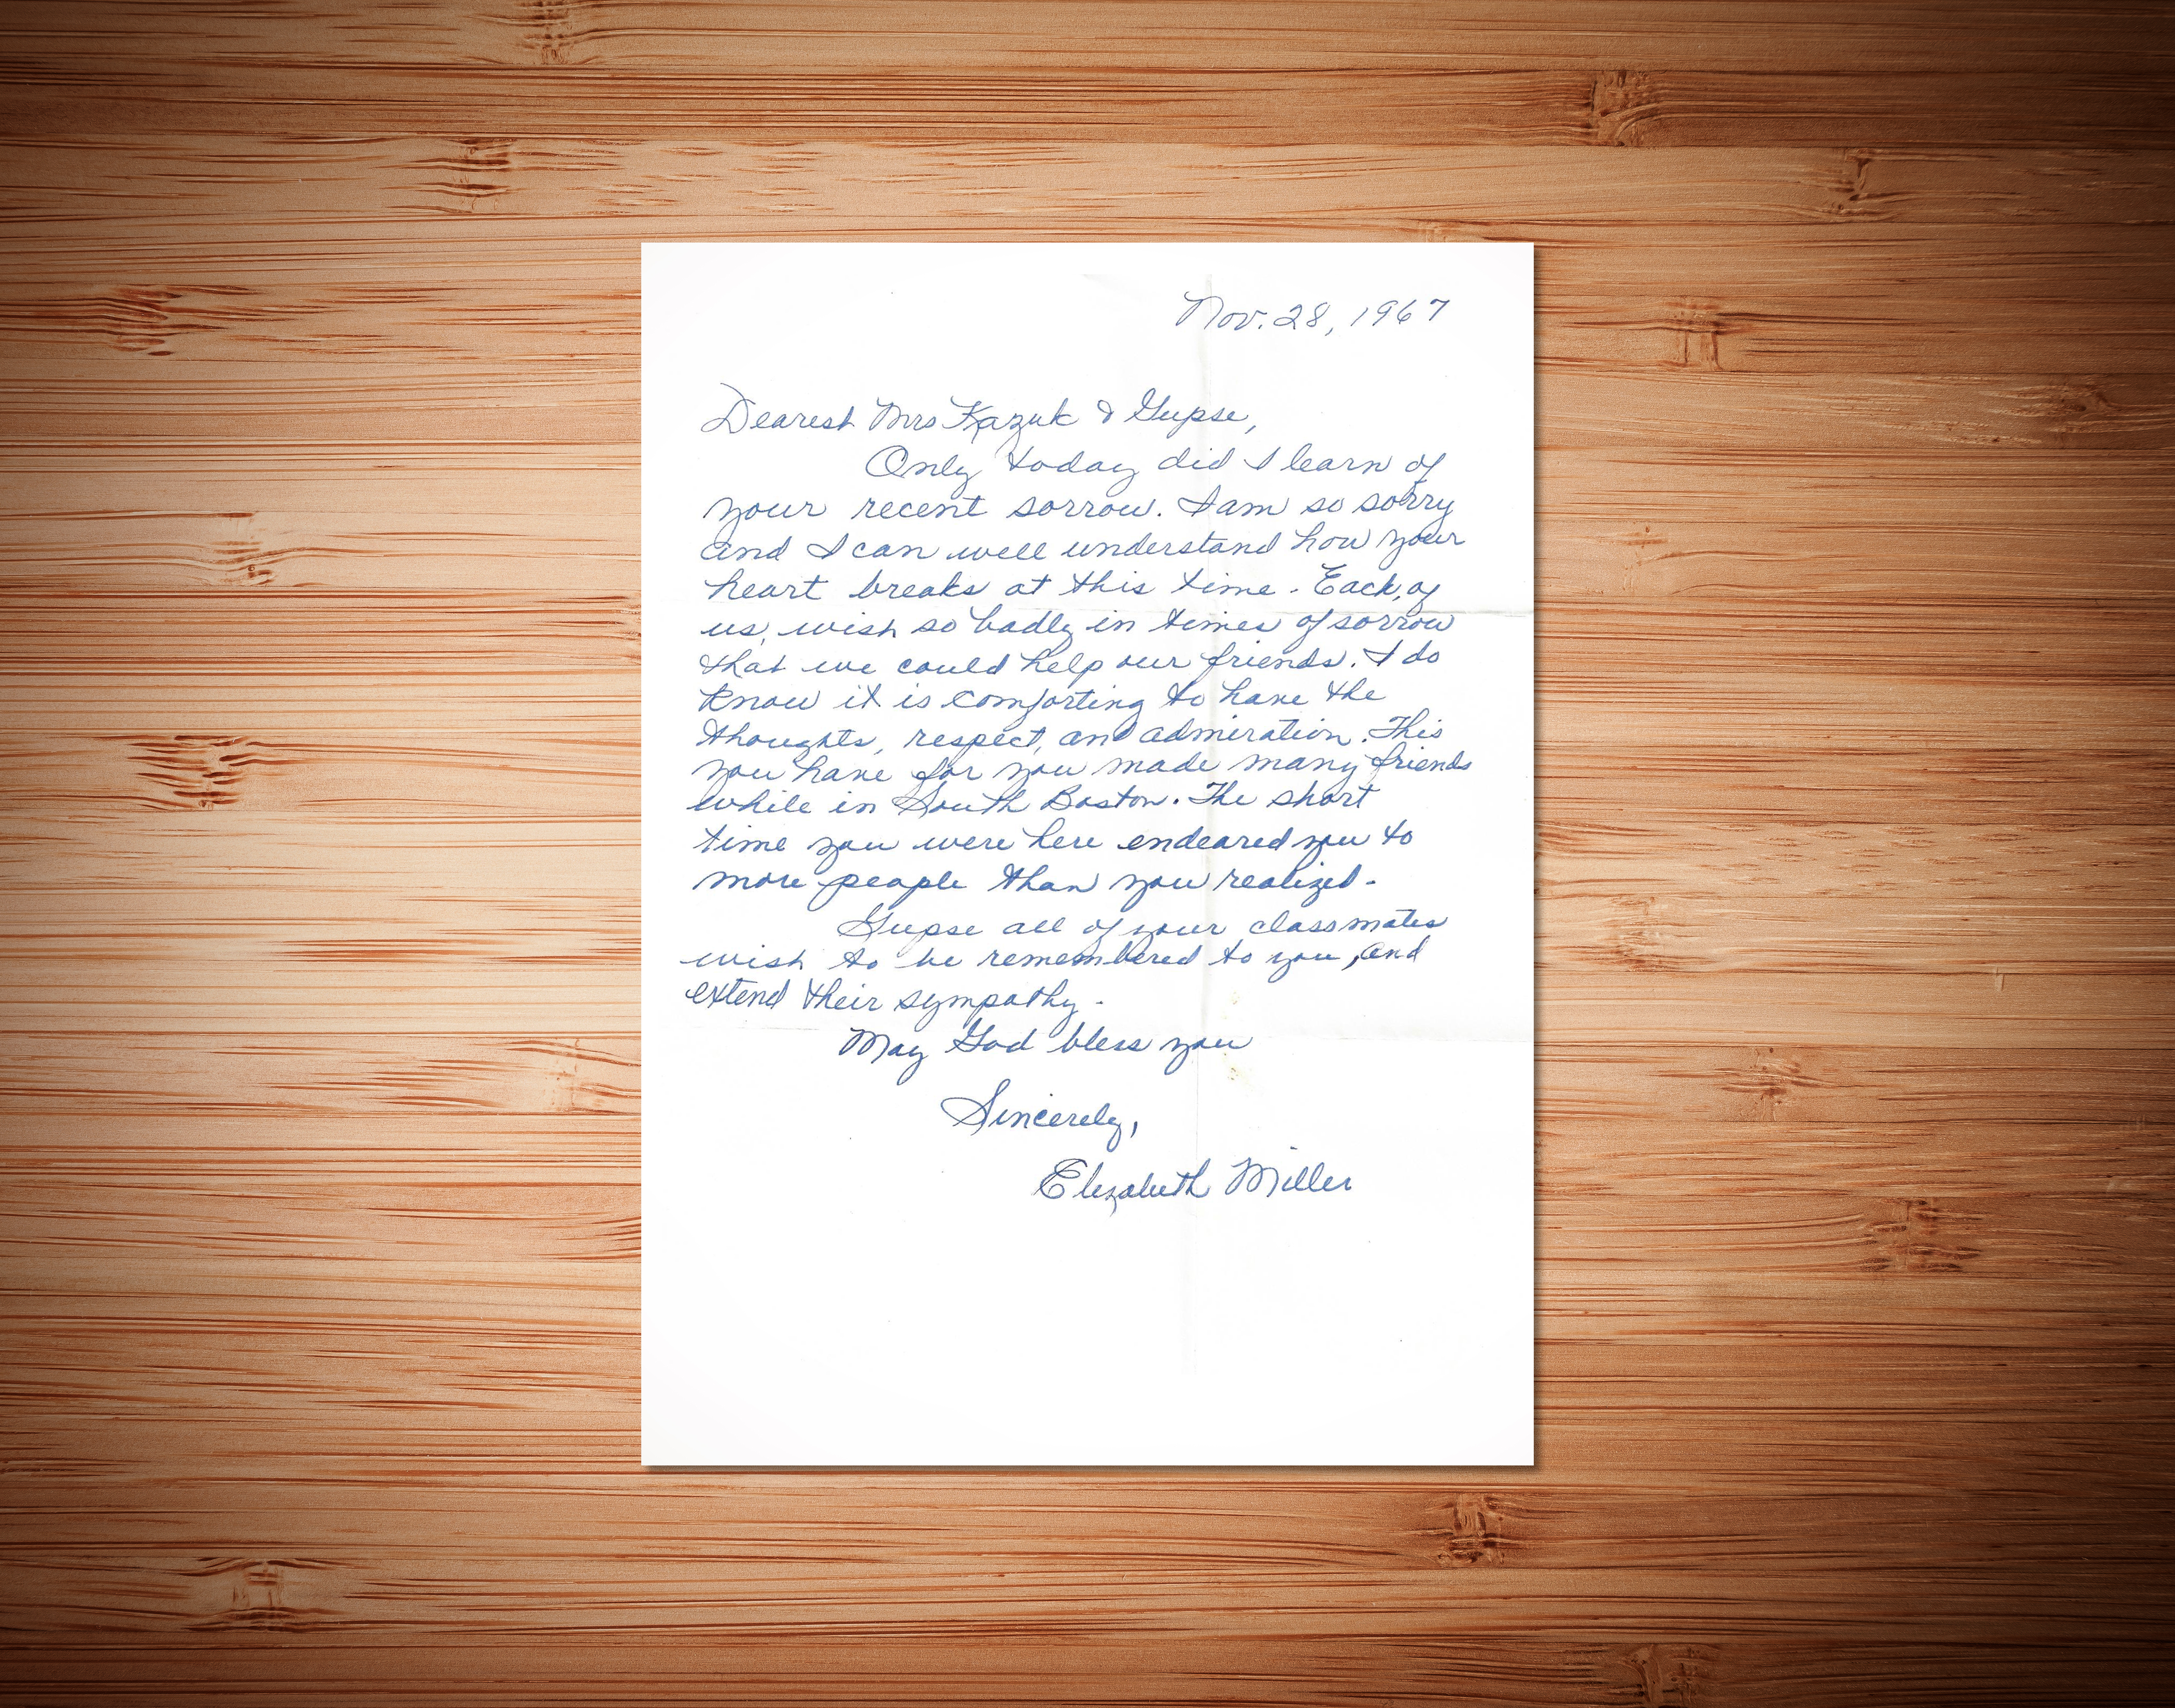 Nov. 28, 1967
Dearest Mrs Kazuk & Gupse,
Only today did I learn of
your recent sorrow. I am so sorry
and I can well understand how your
heart breaks at this time. Each, of
us, wish so badly in times of sorrow
that we could help our friends. I do
know it is comforting to have the
thoughts, respect, and admiration. This
you have for you made many friends
while in South Boston. The short
time you were here endeared you to
more people than you realized.
Gupse all of your classmates
wish to be remembered to you, and
extend their sympathy.
May God bless you
Sincerely,
Elizabeth Miller